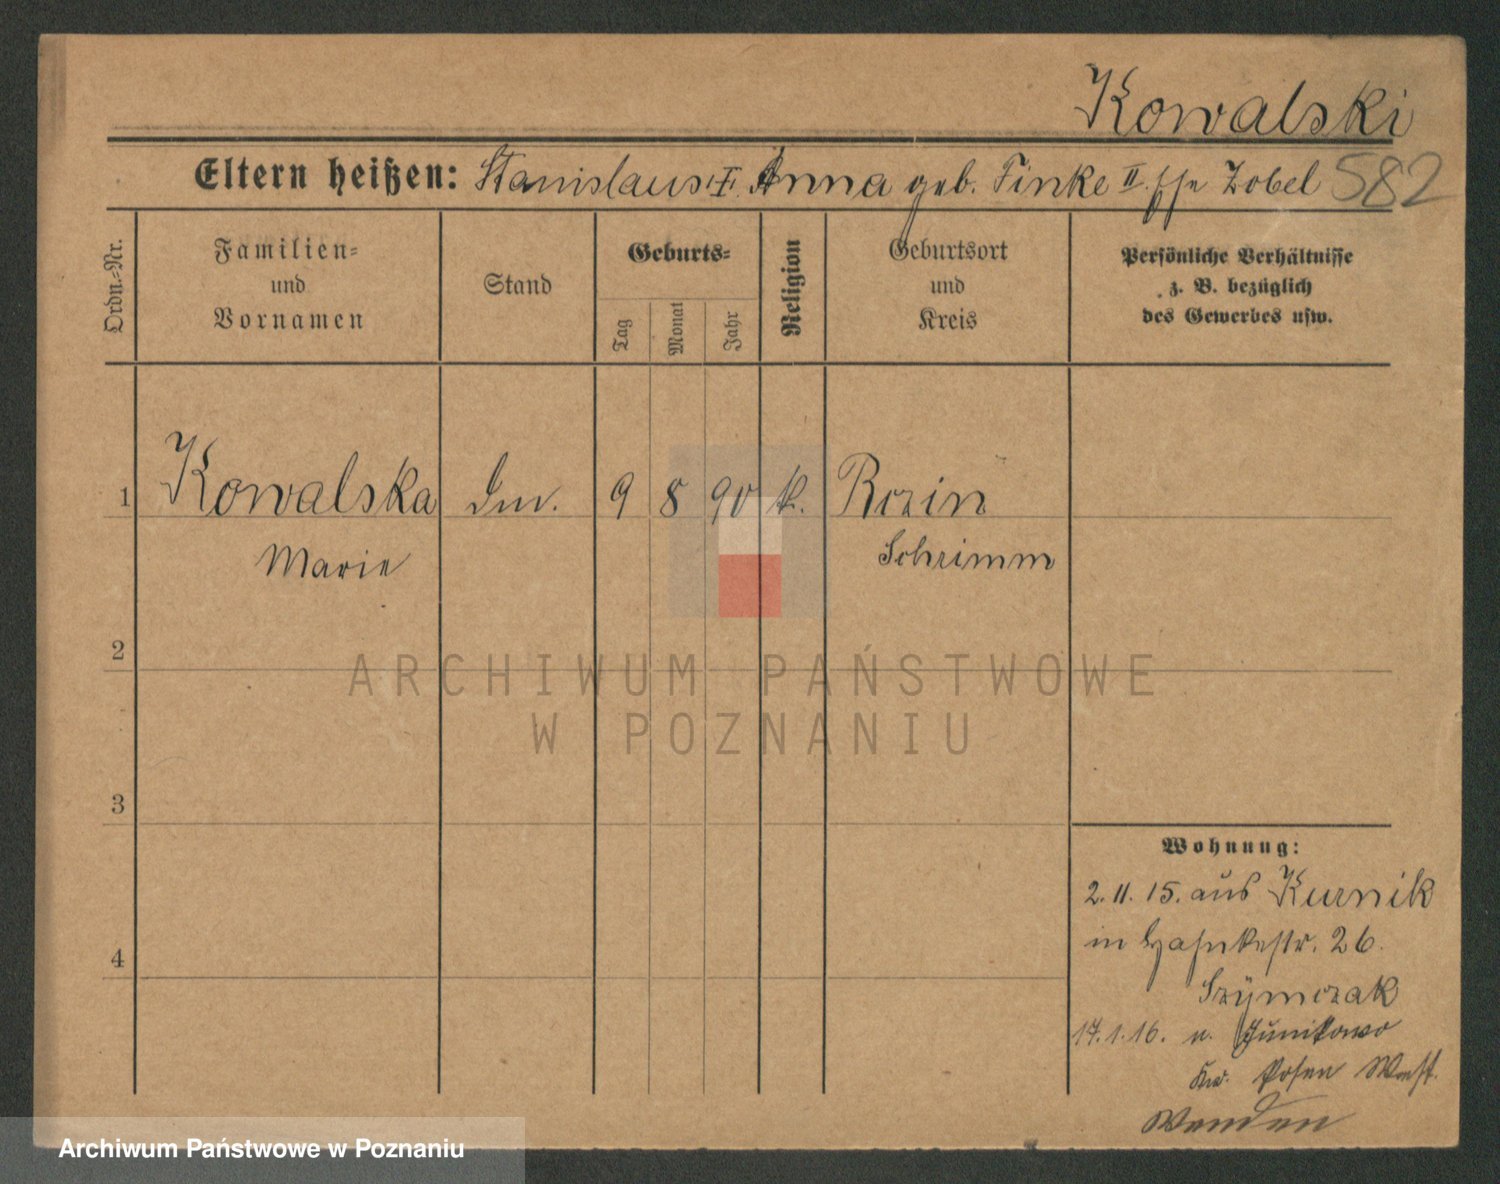 Kowalski
Eltern heißen: Stanislaus I. Anna geb. Finke II. Zobel 582
Ordn.-Nr.
Familien-
und
Vornamen
Stand
Geburts-
Tag
Monat
Jahr
Religion
Geburtsort
und
Kreis
Persönliche Verhältnisse
z. B. bezüglich
des Gewerbes usw.
1 Kowalska 9 8 90 k.
Marie Schrimm
2
3
4
Wohnung:
2. 11. 15. aus Kurnik
in 26.
Szÿmczak
17. 1. 16. n. Junikowo
Posen West.
ARCHIWUM PAŃSTWOWE
W POZNANIU
Archiwum Państwowe w Poznaniu